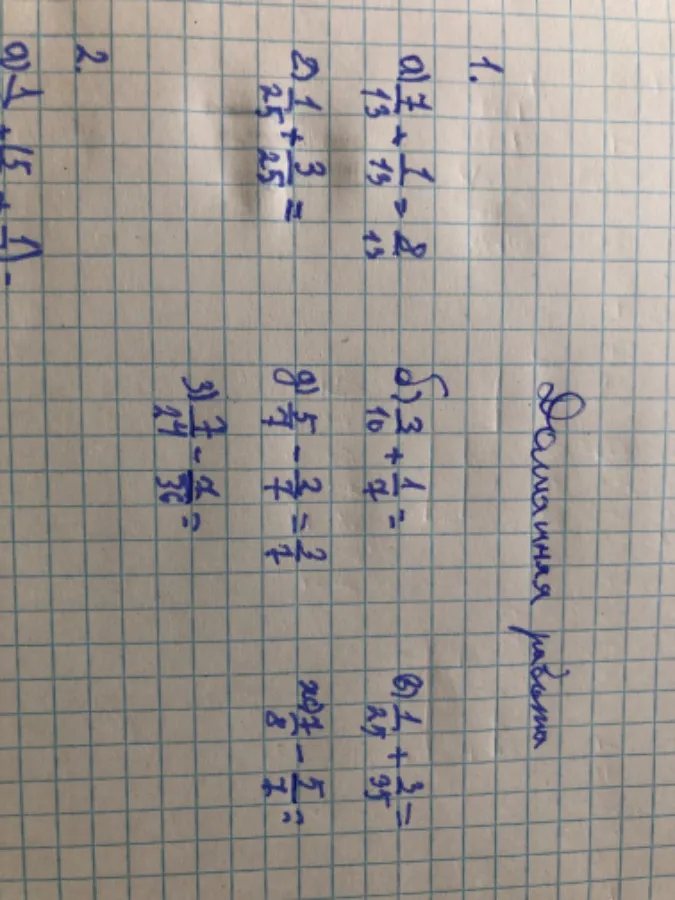 Домашняя работа
1.
а) 7/13 + 1/13 = 8/13 б) 3/10 + 1/7 = в) 1/25 + 2/35 =
г) 1/25 + 3/25 = д) 5/7 - 3/7 = 2/7 ж) 7/8 - 5/7 =
з) 7/24 - 7/36 =
2.
а) 1